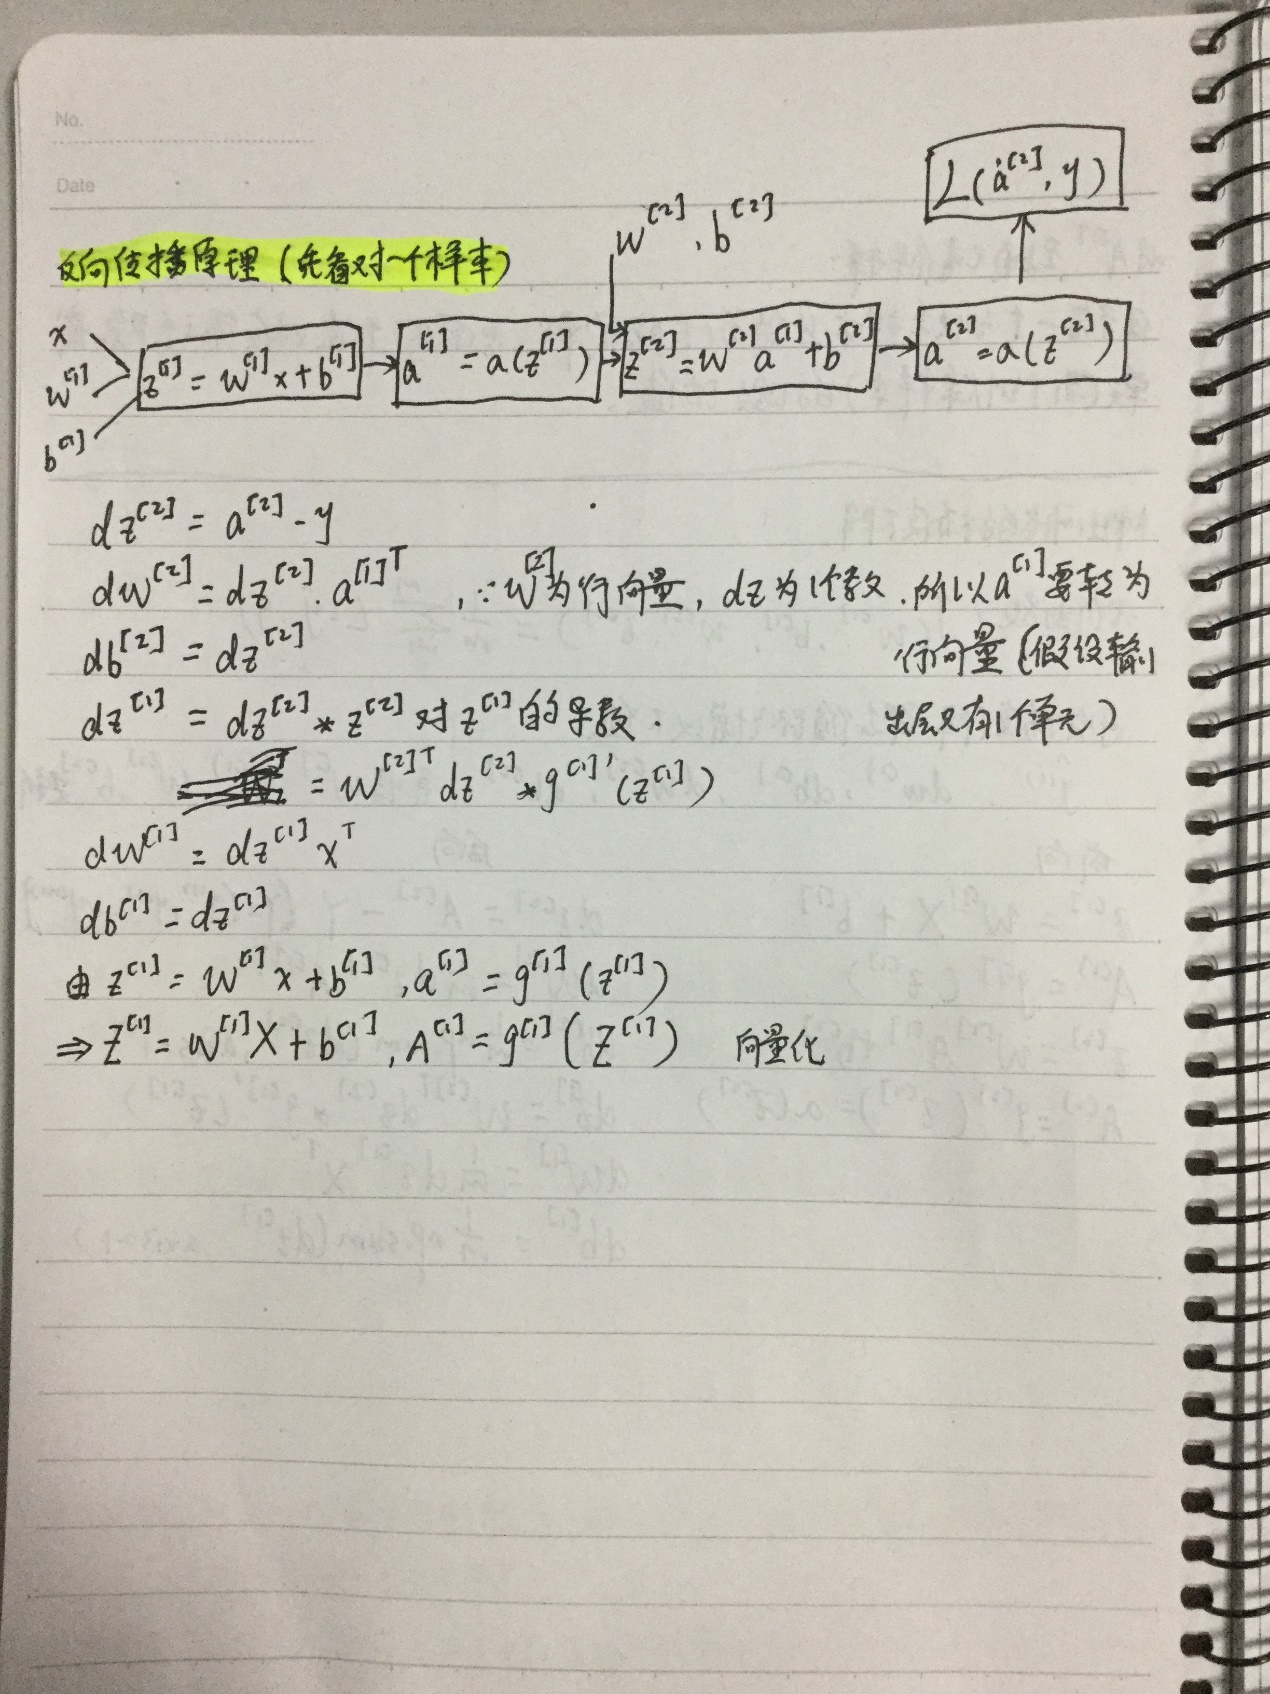 No.
Date
L(a^[2], y)
w^[2], b^[2]
反向传播原理(先看对一个样本)
x
w^[1]
b^[1]
z^[1] = w^[1]x + b^[1] → a^[1] = a(z^[1]) → z^[2] = w^[2]a^[1] + b^[2] → a^[2] = a(z^[2])
dz^[2] = a^[2] - y
dw^[2] = dz^[2]. a^[1]T , ∵ w^[2]为行向量, dz为1个数. 所以a^[1]要转为
行向量(假设输
出层只有1个单元)
db^[2] = dz^[2]
dz^[1] = dz^[2] * z^[2] 对 z^[1] 的导数.
= w^[2]T dz^[2] * g^[1]'(z^[1])
dw^[1] = dz^[1] x^T
db^[1] = dz^[1]
由 z^[1] = w^[1]x + b^[1], a^[1] = g^[1](z^[1])
⇒ Z^[1] = w^[1]X + b^[1], A^[1] = g^[1](Z^[1]) 向量化